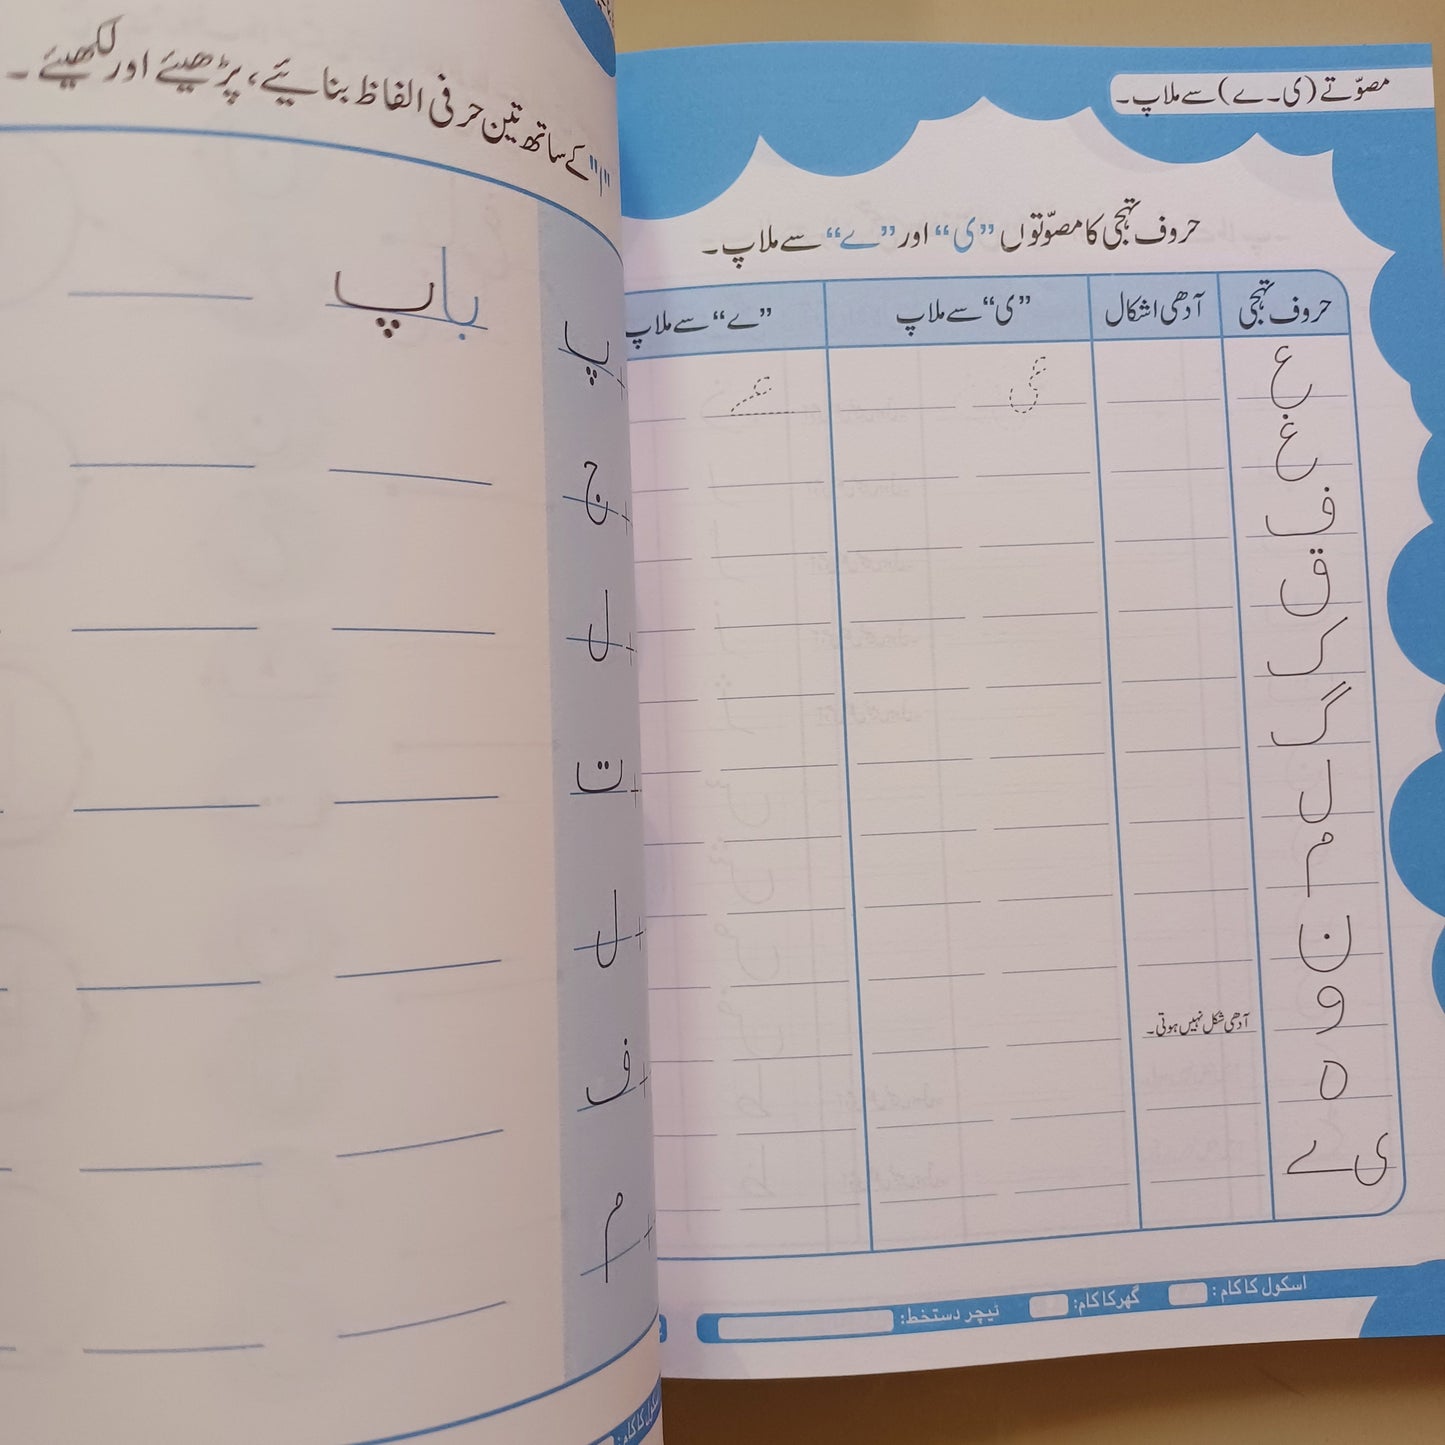 مصوّتے (ی۔ے) سے ملاپ۔
حروف تہجی کا مصوّتوں ”ی“ اور ”ے“ سے ملاپ۔
حروف تہجی آدھی اشکال ”ی“ سے ملاپ ”ے“ سے ملاپ
ع عی عے
غ
ف
ق
ک
گ
ل
م
ن
و آدھی شکل نہیں ہوتی۔
ہ
ی ے
اسکول کا کام: گھر کا کام: ٹیچر دستخط:
"ا" کے ساتھ تین حرفی الفاظ بنائیے، پڑھیئے اور لکھیئے۔
+ پ باپ
+ ج
+ ل
+ ت
+ ل
+ ف
+ م
اسکول کا کام: